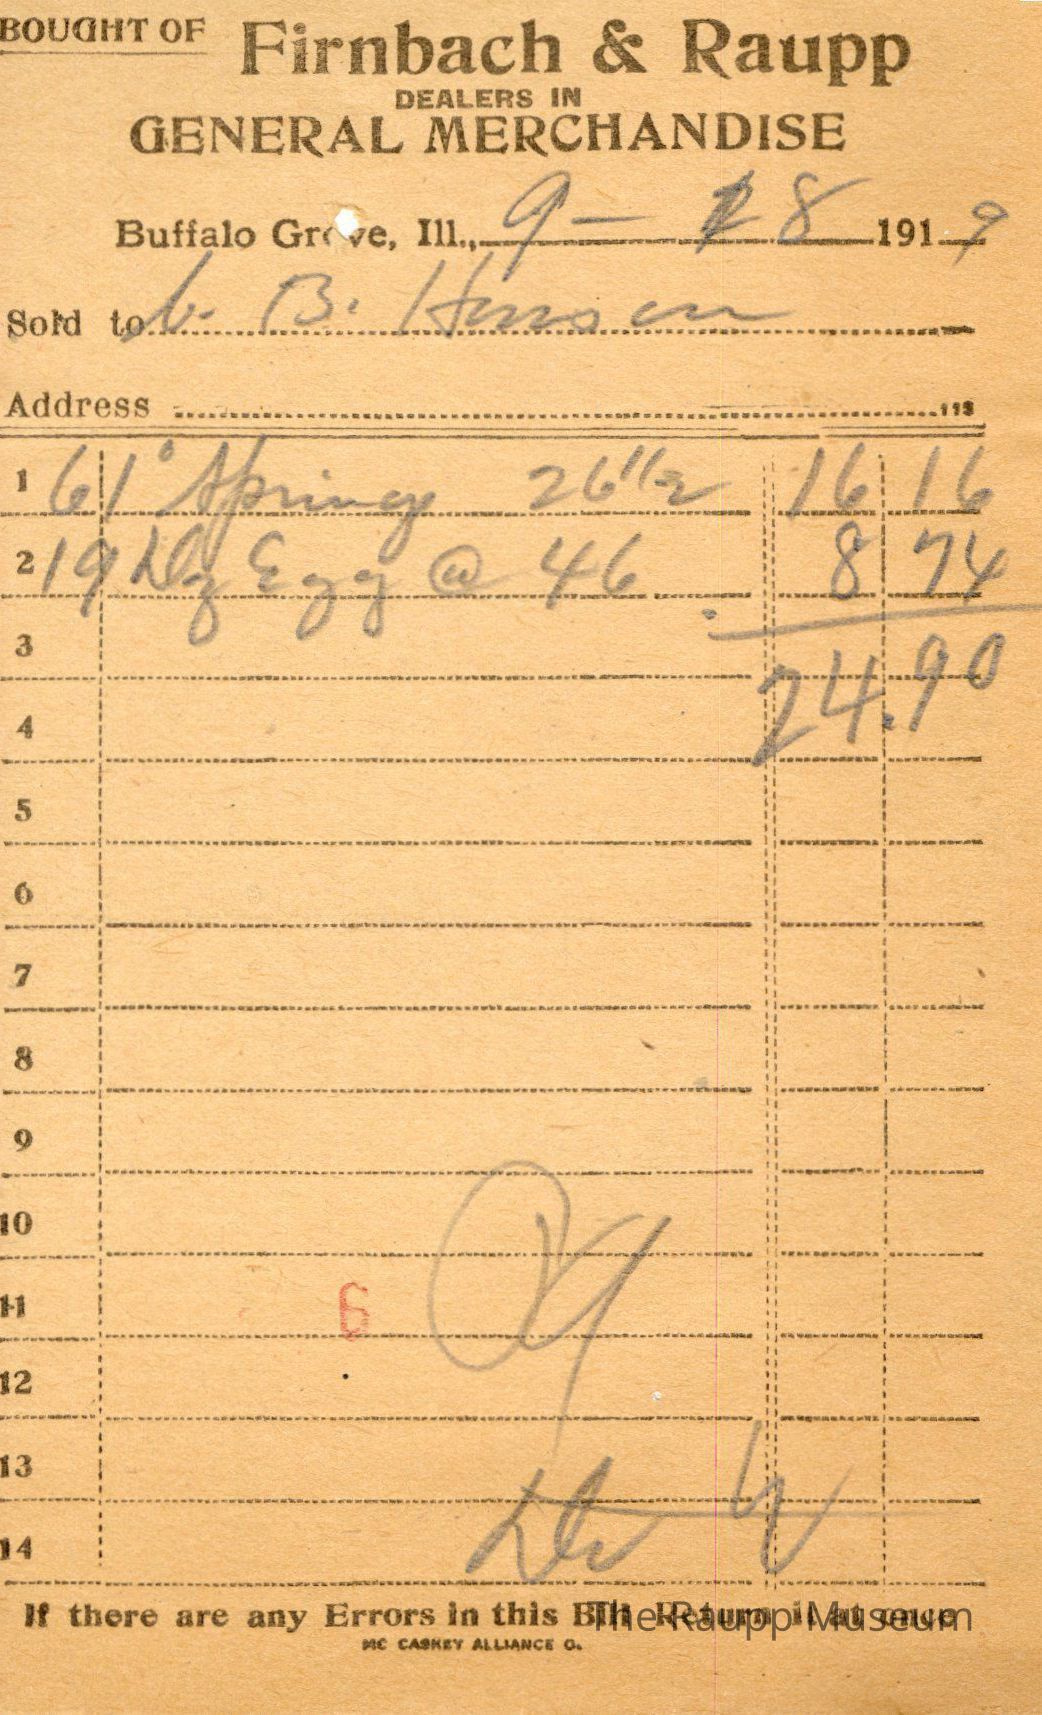 BOUGHT OF Firnbach & Raupp
DEALERS IN
GENERAL MERCHANDISE
Buffalo Grove, Ill., 9 - 28 1919
Sold to B. Hansen
Address
113
1 61° Spring 26 1/2 16 16
2 19 Dz Egg @ 46 8 74
3 24.90
4
5
6
7
8
9
10
11 6
12
13
14
If there are any Errors in this Bill Return it at once
The Raupp Museum
MC CASKEY ALLIANCE O.